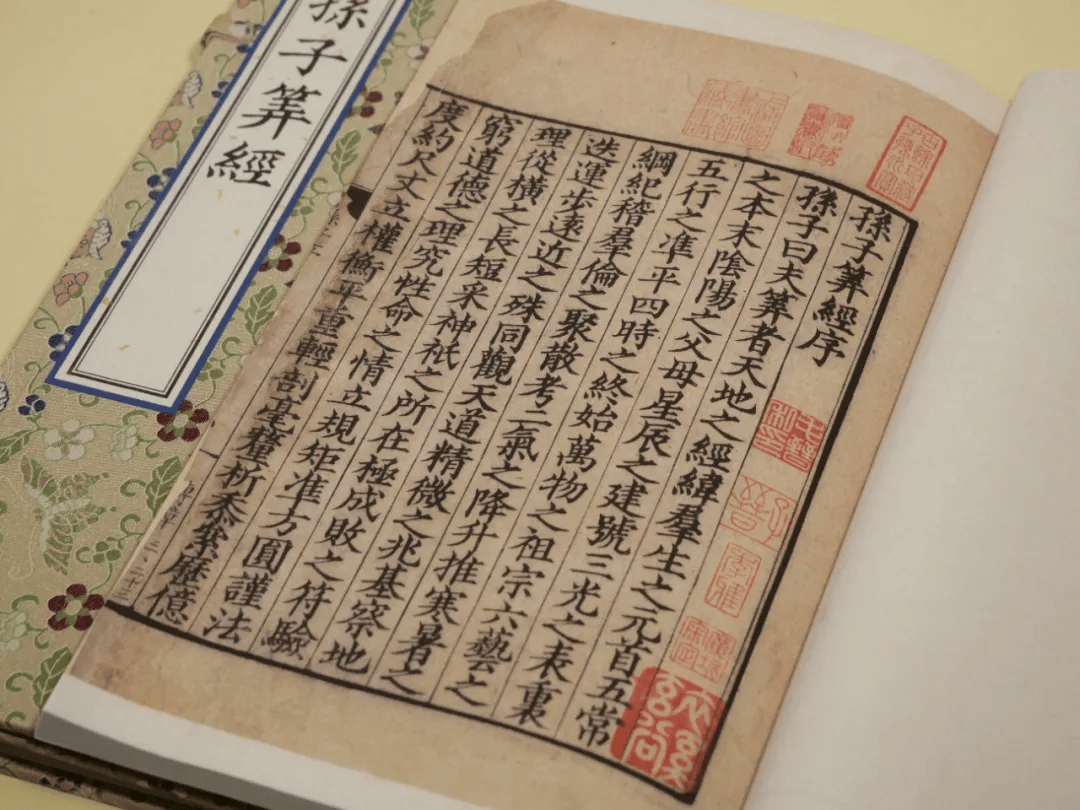 孫子筭經
孫子筭經序
孫子曰夫筭者天地之經緯羣生之元首五常
之本末陰陽之父母星辰之建號三光之表裏
五行之准平四時之終始萬物之祖宗六藝之
綱紀稽羣倫之聚散考二氣之降升推寒暑之
迭運步遠近之殊同觀天道精微之兆基察地
理從橫之長短采神祇之所在極成敗之符驗
窮道德之理究性命之情立規矩准方圓謹法
度約尺丈立權衡平重輕剖毫釐析黍絫歷億